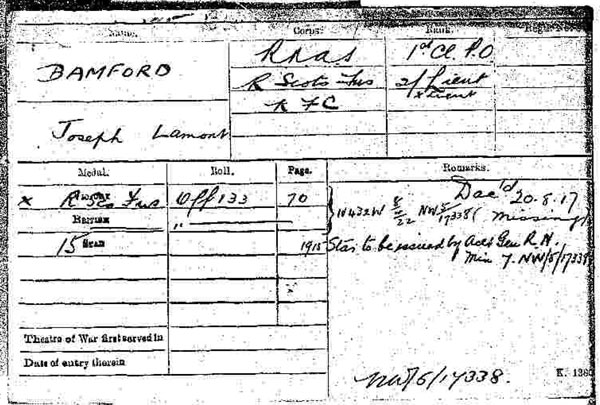 Name. Corps. Rank. Regtl. No.
BAMFORD R N A S 1st Cl. P.O
R Scots Fus 2/Lieut
x Lieut
R F C
Joseph Lamont
Medal. Roll. Page. Remarks.
x Victory R Sco Fus Off 133 70 Dec'd 20.8.17
British " " N432W 8/5/22 NW/5/17338 (Missing)
15 Star 1915 Star to be issued by Acct Gen R N.
Min 7. NW/5/17338
Theatre of War first served in
Date of entry therein
NW/5/17338.
K. 1380